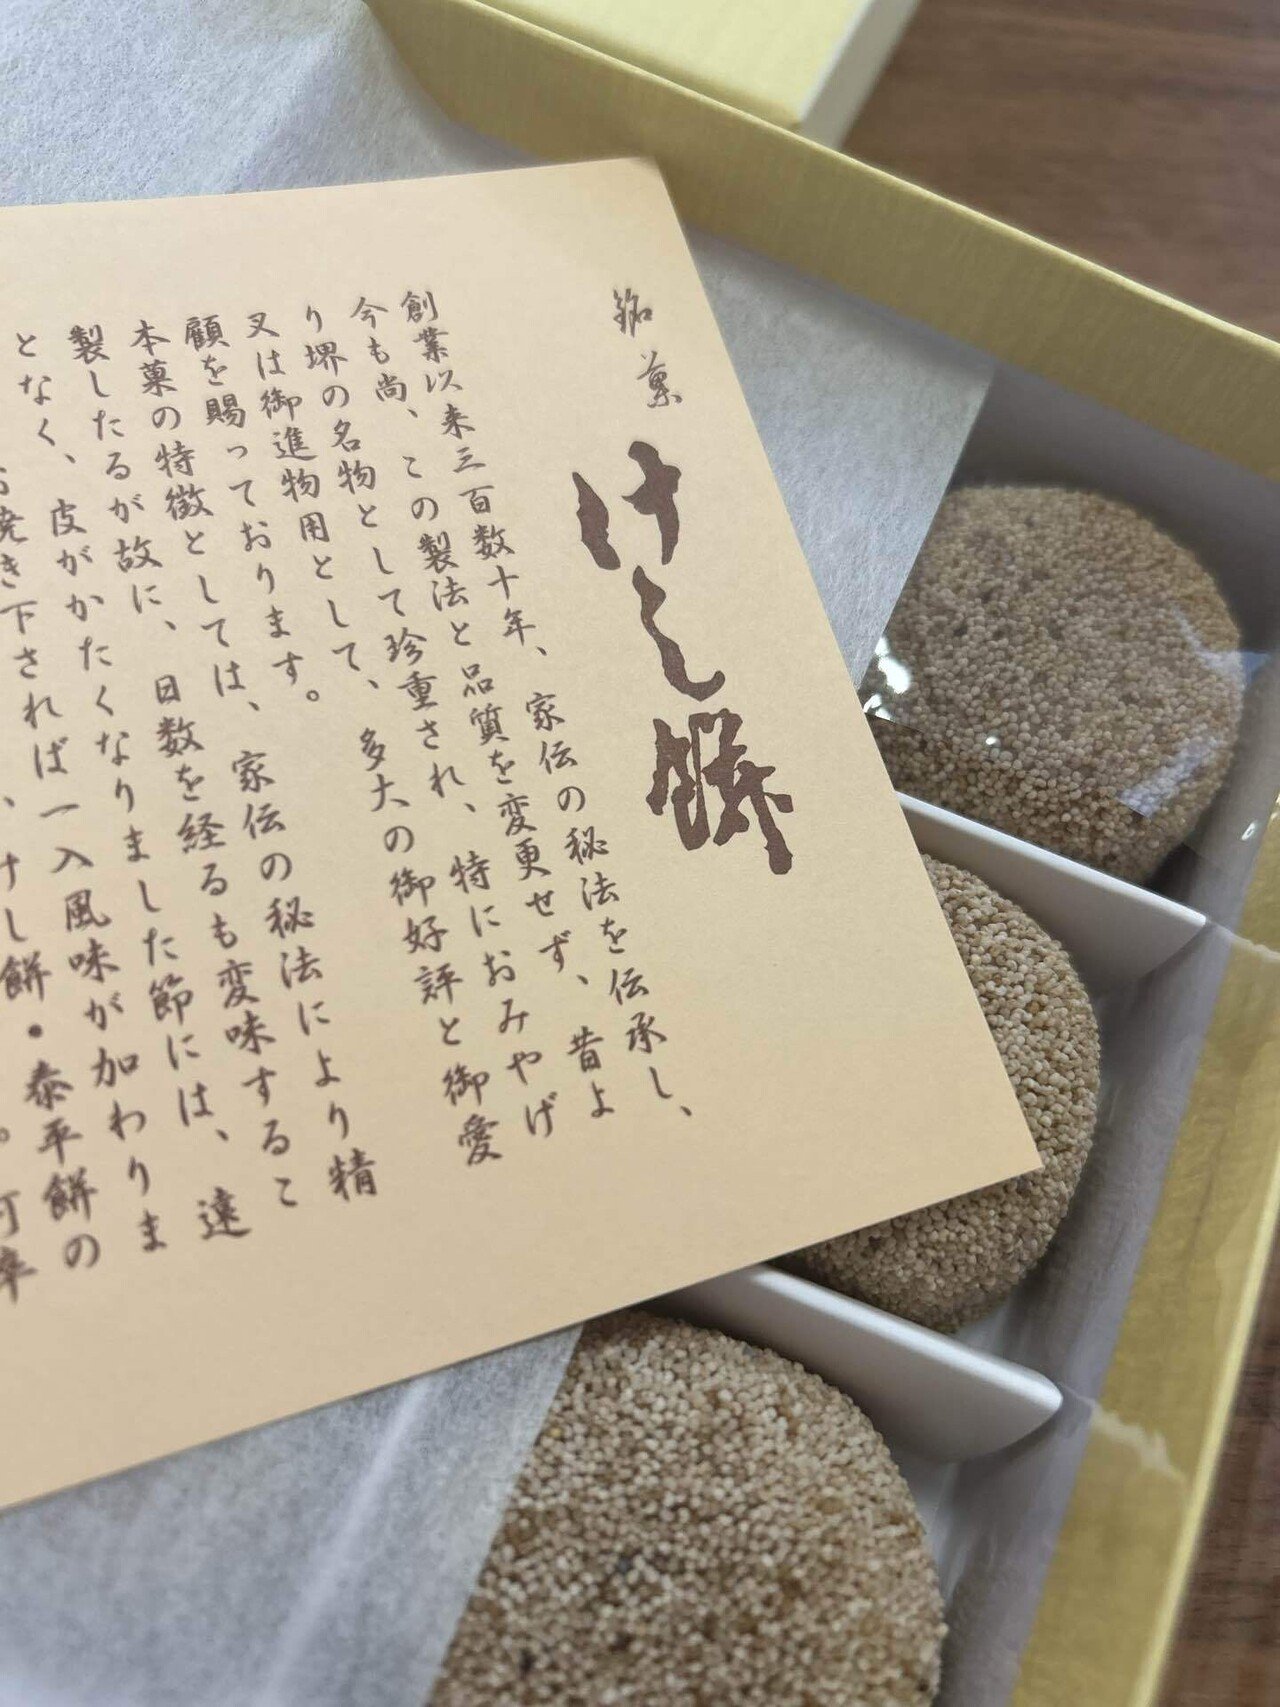 銘菓 けし餅
創業以来三百数十年、家伝の秘法を伝承し、
今も尚、この製法と品質を変更せず、昔よ
り堺の名物として珍重され、特におみやげ
又は御進物用として、多大の御好評と御愛
顧を賜っております。
本菓の特徴としては、家伝の秘法により精
製したるが故に、日数を経るも変味するこ
となく、皮がかたくなりました節には、遠
お焼き下されば一入風味が加わりま
、けし餅・泰平餅の